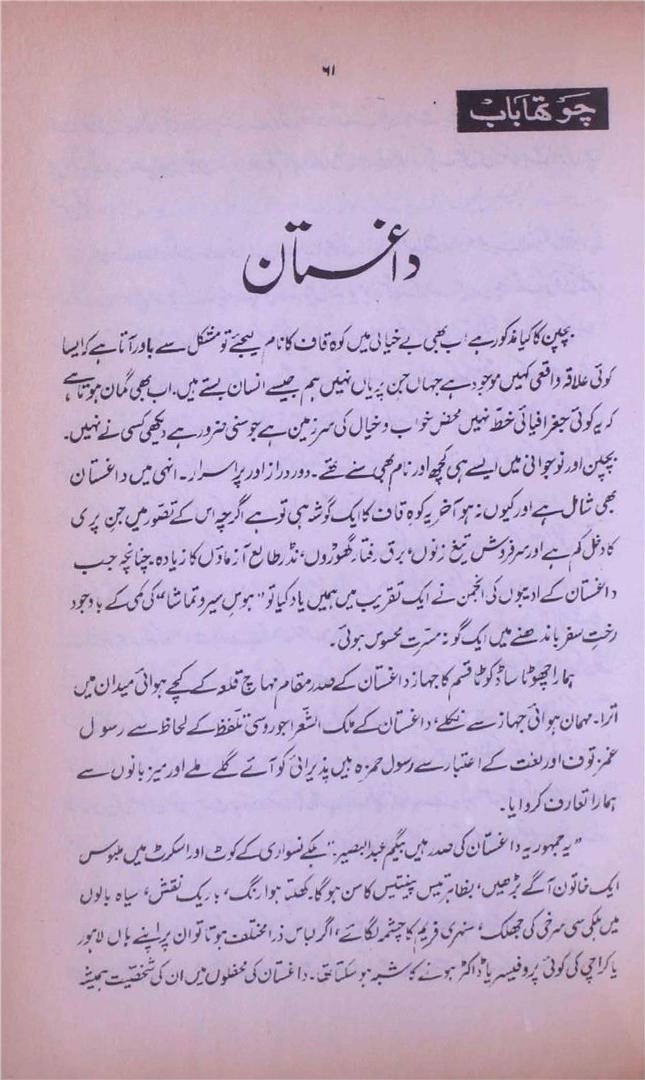 ۶۱
چوتھا باب
داغستان
بچپن کا کیا مذکور ہے اب بھی بے خیالی میں کوہ قاف کا نام لیجئے تو مشکل سے باور آتا ہے کہ ایسا
کوئی علاقہ واقعی کہیں موجود ہے جہاں جن پریاں نہیں ہم جیسے انسان بستے ہیں۔ اب بھی گمان ہوتا ہے
کہ یہ کوئی جغرافیائی خطہ نہیں محض خواب و خیال کی سرزمین ہے جو سنی ضرور ہے دیکھی کسی نے نہیں۔
بچپن اور نوجوانی میں ایسے ہی کچھ اور نام بھی سنے تھے۔ دور دراز اور پر اسرار۔ انہی میں داغستان
بھی شامل ہے اور کیوں نہ ہو آخر یہ کوہ قاف کا ایک گوشہ ہی تو ہے اگرچہ اس کے تصور میں جن پری
کا دخل کم ہے اور سرفروش تیغ زنوں، برق رفتار گھوڑوں، نڈر طالع آزماؤں کا زیادہ چنانچہ جب
داغستان کے ادیبوں کی انجمن نے ایک تقریب میں ہمیں یاد کیا تو "ہوسِ سیر و تماشا" کی کمی کے باوجود
رختِ سفر باندھنے میں ایک گونہ مسرت محسوس ہوئی۔
ہمارا چھوٹا سا ڈکوٹا قسم کا جہاز داغستان کے صدر مقام مہاچ قلعہ کے کچے ہوائی میدان میں
اترا۔ مہمان ہوائی جہاز سے نکلے، داغستان کے ملک الشعرا جو روسی تلفظ کے لحاظ سے رسول
غمزتوف اور لغت کے اعتبار سے رسول حمزہ ہیں پذیرائی کو آئے گلے ملے اور میزبانوں سے
ہمارا تعارف کروایا۔
"یہ جمہوریہ داغستان کی صدر ہیں بیگم عبدالبصیر" ہلکے نسواری کے کوٹ اور اسکرٹ میں ملبوس
ایک خاتون آگے بڑھیں، بظاہر تیس پینتیس کا سن ہوگا۔ کھلتا ہوا رنگ، باریک نقش، سیاہ بالوں
میں ہلکی سی سرخی کی جھلک، سنہری فریم کا چشمہ لگائے، اگر لباس ذرا مختلف ہوتا تو ان پر اپنے ہاں لاہور
یا کراچی کی کوئی پروفیسر یا ڈاکٹر ہونے کا شبہ ہو سکتا تھا۔ داغستان کی محفلوں میں ان کی شخصیت ہمیشہ